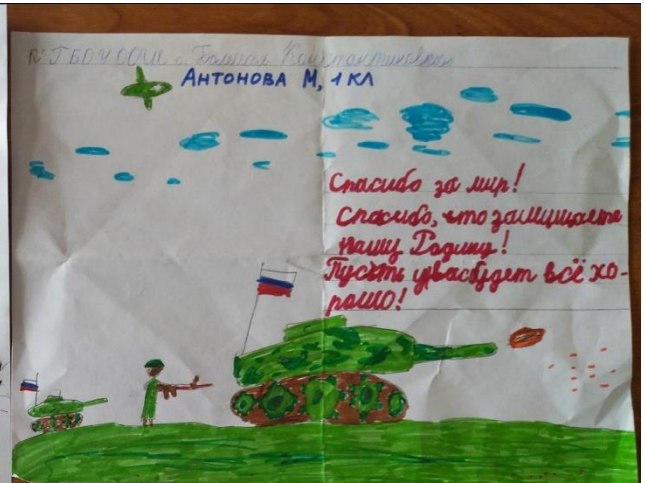 ГБОУ ООШ с. Большая Константиновка
АНТОНОВА М, 1 КЛ
Спасибо за мир!
Спасибо, что защищаете
нашу Родину!
Пусть у вас будет всё хо-
рошо!